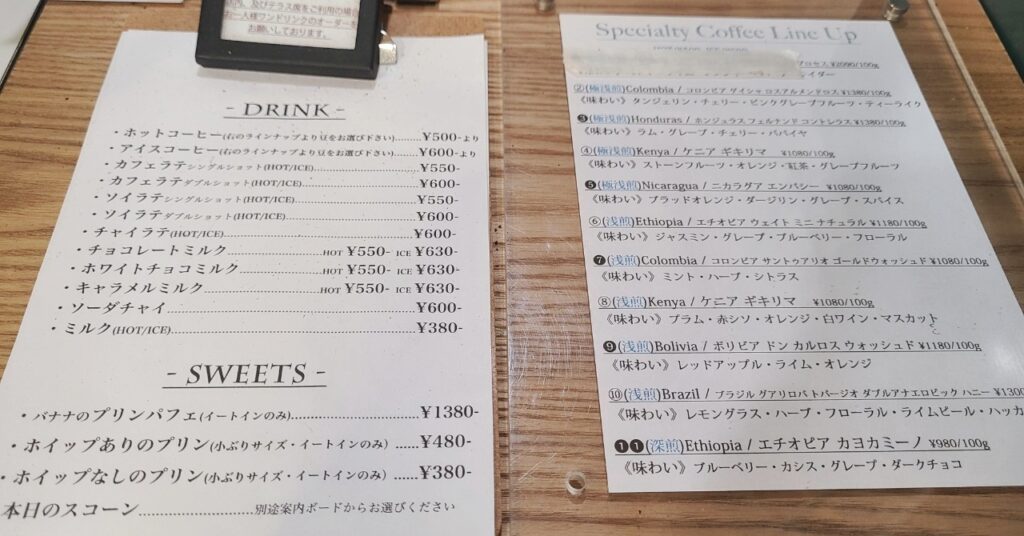 内、及びテラス席をご利用の場合
お一人様ワンドリンクのオーダーを
お願いしております。
- DRINK -
・ホットコーヒー(右のラインナップより豆をお選び下さい)......¥500-より
・アイスコーヒー(右のラインナップより豆をお選び下さい)......¥600-より
・カフェラテシングルショット(HOT/ICE)......¥550-
・カフェラテダブルショット(HOT/ICE)......¥600-
・ソイラテシングルショット(HOT/ICE)......¥550-
・ソイラテダブルショット(HOT/ICE)......¥600-
・チャイラテ(HOT/ICE)......¥600-
・チョコレートミルク......HOT ¥550- ICE ¥630-
・ホワイトチョコミルク......HOT ¥550- ICE ¥630-
・キャラメルミルク......HOT ¥550- ICE ¥630-
・ソーダチャイ......¥600-
・ミルク(HOT/ICE)......¥380-
- SWEETS -
・バナナのプリンパフェ(イートインのみ)......¥1380-
・ホイップありのプリン(小ぶりサイズ・イートインのみ)......¥480-
・ホイップなしのプリン(小ぶりサイズ・イートインのみ)......¥380-
本日のスコーン......別途案内ボードからお選びください
Specialty Coffee Line Up
プロセス ¥2090/100g
イダー
②(極浅煎)Colombia / コロンビア ゲイシャ ロスアルメンドロス ¥1380/100g
《味わい》タンジェリン・チェリー・ピンクグレープフルーツ・ティーライク
❸(極浅煎)Honduras / ホンジュラス フェルナンド コントレラス ¥1380/100g
《味わい》ラム・グレープ・チェリー・パパイヤ
④(極浅煎)Kenya / ケニア ギキリマ ¥1080/100g
《味わい》ストーンフルーツ・オレンジ・紅茶・グレープフルーツ
❺(極浅煎)Nicaragua / ニカラグア エンバシー ¥1080/100g
《味わい》ブラッドオレンジ・ダージリン・グレープ・スパイス
⑥(浅煎)Ethiopia / エチオピア ウェイト ミニ ナチュラル ¥1180/100g
《味わい》ジャスミン・グレープ・ブルーベリー・フローラル
❼(浅煎)Colombia / コロンビア サントゥアリオ ゴールドウォッシュド ¥1080/100g
《味わい》ミント・ハーブ・シトラス
⑧(浅煎)Kenya / ケニア ギキリマ ¥1080/100g
《味わい》プラム・赤シソ・オレンジ・白ワイン・マスカット
❾(浅煎)Bolivia / ボリビア ドン カルロス ウォッシュド ¥1180/100g
《味わい》レッドアップル・ライム・オレンジ
⑩(浅煎)Brazil / ブラジル グアリロバトバージオ ダブルアナエロビック ハニー ¥1300
《味わい》レモングラス・ハーブ・フローラル・ライムピール・ハッカ
❶❶(深煎)Ethiopia / エチオピア カヨカミーノ ¥980/100g
《味わい》ブルーベリー・カシス・グレープ・ダークチョコ